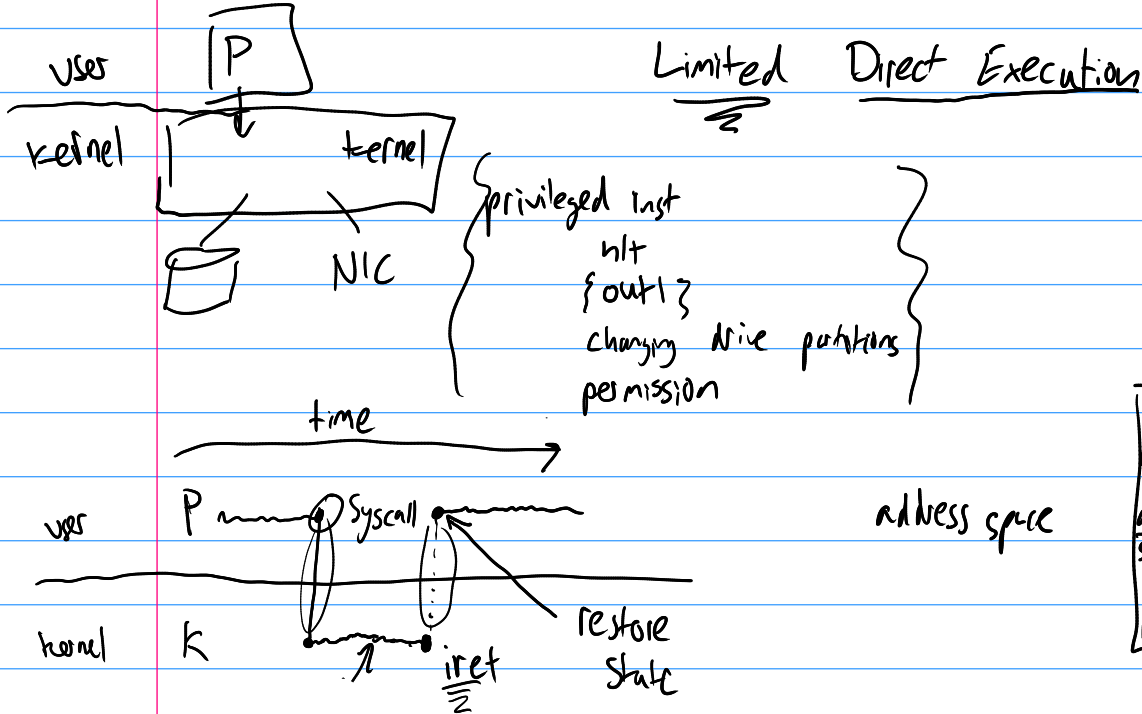 P
user
Limited Direct Execution
kernel
kernel
privileged inst
hlt
{outl}
NIC
changing drive partitions
permission
time
user P Syscall
address space
kernel K
iret
restore
state